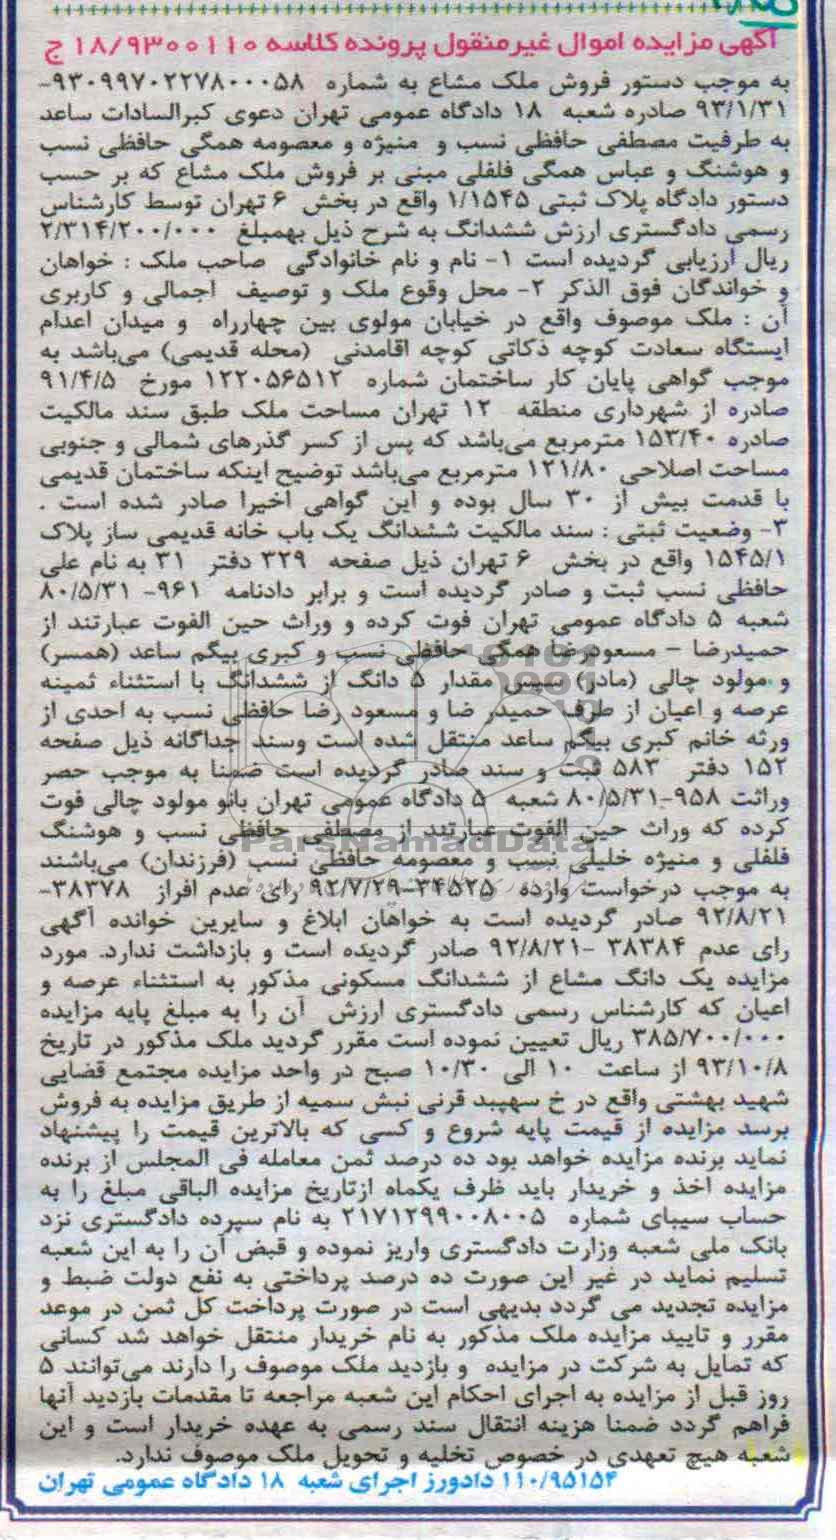 آگهی مزایده اموال غیرمنقول پرونده کلاسه ۱۸/۹۳۰۰۱۱۰ ج
به موجب دستور فروش ملک مشاع به شماره ۹۳۰۹۹۷۰۲۲۷۸۰۰۰۵۸-
۹۳/۱/۳۱ صادره شعبه ۱۸ دادگاه عمومی تهران دعوی کبرالسادات ساعد
به طرفیت مصطفی حافظی نسب و منیژه و معصومه همگی حافظی نسب
و هوشنگ و عباس همگی فلفلی مبنی بر فروش ملک مشاع که بر حسب
دستور دادگاه پلاک ثبتی ۱/۱۵۴۵ واقع در بخش ۶ تهران توسط کارشناس
رسمی دادگستری ارزش ششدانگ به شرح ذیل بهمبلغ ۲/۳۱۴/۲۰۰/۰۰۰
ریال ارزیابی گردیده است ۱- نام و نام خانوادگی صاحب ملک : خواهان
و خواندگان فوق الذکر ۲- محل وقوع ملک و توصیف اجمالی و کاربری
آن : ملک موصوف واقع در خیابان مولوی بین چهارراه و میدان اعدام
ایستگاه سعادت کوچه ذکاتی کوچه اقامدنی (محله قدیمی) می‌باشد به
موجب گواهی پایان کار ساختمان شماره ۱۲۲۰۵۶۵۱۲ مورخ ۹۱/۴/۵
صادره از شهرداری منطقه ۱۲ تهران مساحت ملک طبق سند مالکیت
صادره ۱۵۳/۴۰ مترمربع می‌باشد که پس از کسر گذرهای شمالی و جنوبی
مساحت اصلاحی ۱۲۱/۸۰ مترمربع می‌باشد توضیح اینکه ساختمان قدیمی
با قدمت بیش از ۳۰ سال بوده و این گواهی اخیرا صادر شده است .
۳- وضعیت ثبتی : سند مالکیت ششدانگ یک باب خانه قدیمی ساز پلاک
۱۵۴۵/۱ واقع در بخش ۶ تهران ذیل صفحه ۳۲۹ دفتر ۳۱ به نام علی
حافظی نسب ثبت و صادر گردیده است و برابر دادنامه ۹۶۱- ۸۰/۵/۳۱
شعبه ۵ دادگاه عمومی تهران فوت کرده و وراث حین الفوت عبارتند از
حمیدرضا – مسعودرضا همگی حافظی نسب و کبری بیگم ساعد (همسر)
و مولود چالی (مادر) سپس مقدار ۵ دانگ از ششدانگ با استثناء ثمینه
عرصه و اعیان از طرف حمیدر ضا و مسعود رضا حافظی نسب به احدی از
ورثه خانم کبری بیگم ساعد منتقل شده است وسند جداگانه ذیل صفحه
۱۵۲ دفتر ۵۸۳ ثبت و سند صادر گردیده است ضمنا به موجب حصر
وراثت ۹۵۸-۸۰/۵/۳۱ شعبه ۵ دادگاه عمومی تهران بانو مولود چالی فوت
کرده که وراث حین الفوت عبارتند از مصطفی حافظی نسب و هوشنگ
فلفلی و منیژه خلیلی نسب و معصومه حافظی نسب (فرزندان) می‌باشند
به موجب درخواست وارده ۳۴۵۲۵-۹۲/۷/۲۹ رای عدم افراز ۳۸۳۷۸-
۹۲/۸/۲۱ صادر گردیده است به خواهان ابلاغ و سایرین خوانده آگهی
رای عدم ۳۸۳۸۴ -۹۲/۸/۲۱ صادر گردیده است و بازداشت ندارد. مورد
مزایده یک دانگ مشاع از ششدانگ مسکونی مذکور به استثناء عرصه و
اعیان که کارشناس رسمی دادگستری ارزش آن را به مبلغ پایه مزایده
۳۸۵/۷۰۰/۰۰۰ ریال تعیین نموده است مقرر گردید ملک مذکور در تاریخ
۹۳/۱۰/۸ از ساعت ۱۰ الی ۱۰/۳۰ صبح در واحد مزایده مجتمع قضایی
شهید بهشتی واقع در خ سپهبد قرنی نبش سمیه از طریق مزایده به فروش
برسد مزایده از قیمت پایه شروع و کسی که بالاترین قیمت را پیشنهاد
نماید برنده مزایده خواهد بود ده درصد ثمن معامله فی المجلس از برنده
مزایده اخذ و خریدار باید ظرف یکماه ازتاریخ مزایده الباقی مبلغ را به
حساب سیبای شماره ۲۱۷۱۲۹۹۰۰۸۰۰۵ به نام سپرده دادگستری نزد
بانک ملی شعبه وزارت دادگستری واریز نموده و قبض آن را به این شعبه
تسلیم نماید در غیر این صورت ده درصد پرداختی به نفع دولت ضبط و
مزایده تجدید می گردد بدیهی است در صورت پرداخت کل ثمن در موعد
مقرر و تایید مزایده ملک مذکور به نام خریدار منتقل خواهد شد کسانی
که تمایل به شرکت در مزایده و بازدید ملک موصوف را دارند می‌توانند ۵
روز قبل از مزایده به اجرای احکام این شعبه مراجعه تا مقدمات بازدید آنها
فراهم گردد ضمنا هزینه انتقال سند رسمی به عهده خریدار است و این
شعبه هیچ تعهدی در خصوص تخلیه و تحویل ملک موصوف ندارد.
۱۱۰/۹۵۱۵۴ دادورز اجرای شعبه ۱۸ دادگاه عمومی تهران
ParsNamadData